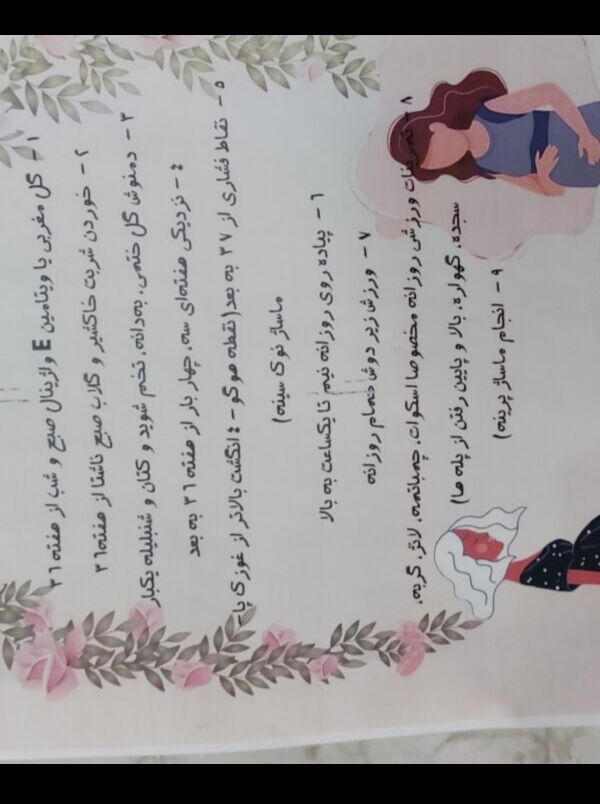 ۱- گل مغربی یا ویتامین E واژینال صبح و شب از هفته ۳۶
۲- خوردن شربت خاکشیر و گلاب صبح ناشتا از هفته ۳۶
۳- دمنوش گل ختمی، به دانه، تخم شوید و کتان و شنبلیله یکبار
۴- نزدیکی هفته‌ای سه، چهار بار از هفته ۳۶ به بعد
۵- نقاط فشاری از ۳۷ به بعد (نقطه هوگو-۴ انگشت بالاتر از غوزک پا-
ماساژ نوک سینه)
۶- پیاده روی روزانه نیم تا یکساعت به بالا
۷- ورزش زیر دوش حمام روزانه
۸- تمرینات ورزشی روزانه مخصوصا اسکوات، چمباتمه، لانژ، گربه،
سجده، گهواره، بالا و پایین رفتن از پله ها)
۹- انجام ماساژ پرینه)